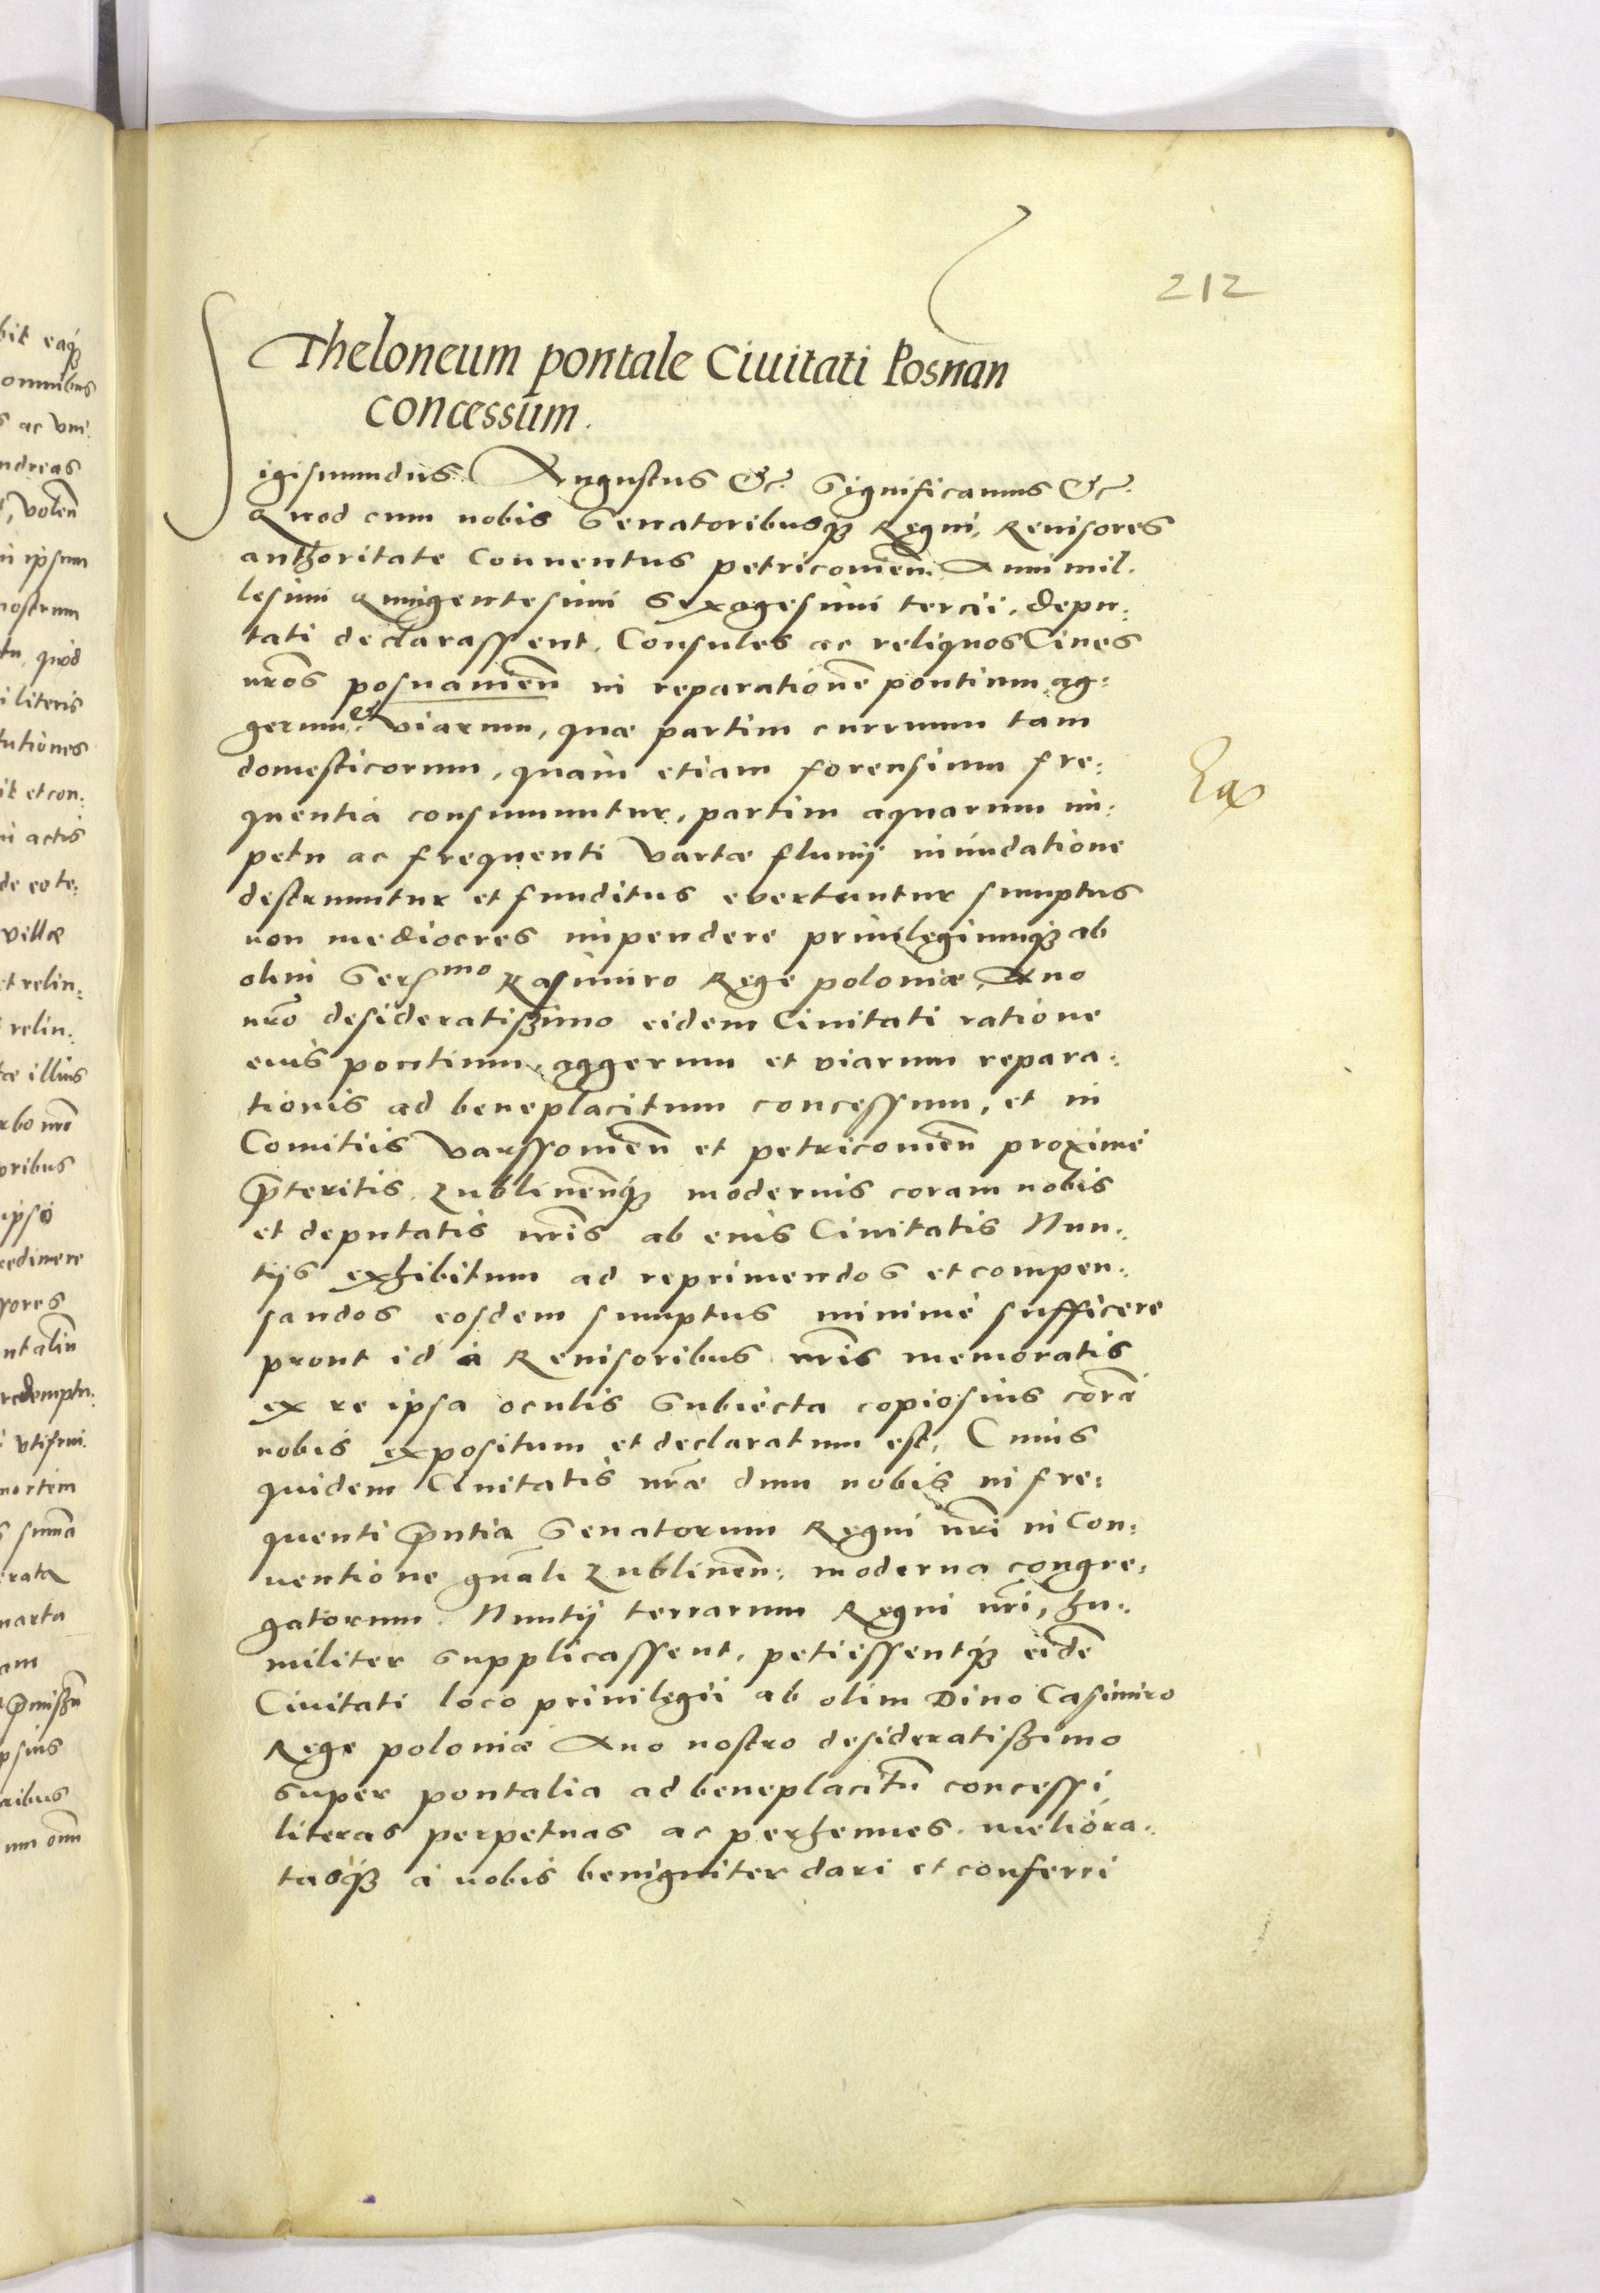 212
Theloneum pontale Ciuitati Posnan
concessum.
Sigismundus Augustus &c. Significamus &c.
Quod cum nobis Senatoribusq₃ Regni, Reuisores
authoritate Conuentus petricouien̄ Anni mil-
lesimi quingentesimi Sexagesimi tercii, depu-
tati declarassent, Consules ac reliquos Ciues
nr̄os posnanien̄ in reparationē pontium ag-
gerum et viarum, quæ partim curruum tam
domesticorum, quàm etiam forensium fre-
quentia consumuntur, partim aquarum im-
petu ac frequenti Vartæ fluuij inundatione
destruuntur et funditus euertuntur sumptus
non mediocres impendere priuilegiumq₃ ab
olim Serᵐᵒ Kasimiro Rege poloniæ Auo
nr̄o desideratissimo eidem Ciuitati ratione
eius pontium, aggerum et viarum repara-
tionis ad beneplacitum concessum, et in
Comitiis Varssouien̄ et petricouien̄ proximè
p̄teritis, Lublinen̄q₃ modernis coram nobis
et deputatis nr̄is ab eius Ciuitatis Nun-
tijs exhibitum ad reprimendos et compen-
sandos eosdem sumptus minimè sufficere
prout id à Reuisoribus nr̄is memoratis
ex re ipsa oculis subiecta copiosius corā
nobis expositum et declaratum est, Cuius
quidem Ciuitatis nr̄æ dum nobis in fre-
quenti p̄ntia Senatorum Regni nr̄i in Con-
uentione gn̄ali Lublinen̄: moderna congre-
gatorum Nuntij terrarum Regni nr̄i, hu-
militer supplicassent, petiissentq₃ eidē
Ciuitati loco priuilegii ab olim Diuo Casimiro
Rege poloniæ Auo nostro desideratissimo
super pontalia ad beneplacitū concessi
literas perpetuas ac perhennes meliora-
tasq₃ à nobis benigniter dari et conferri